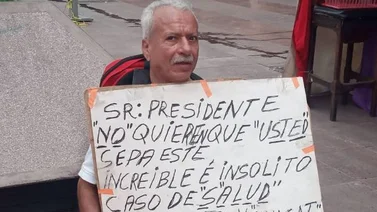 SR: PRESIDENTE
"NO" QUIEREN QUE "USTED"
SEPA ESTE
INCREIBLE É INSOLITO
CASO DE "SALUD"